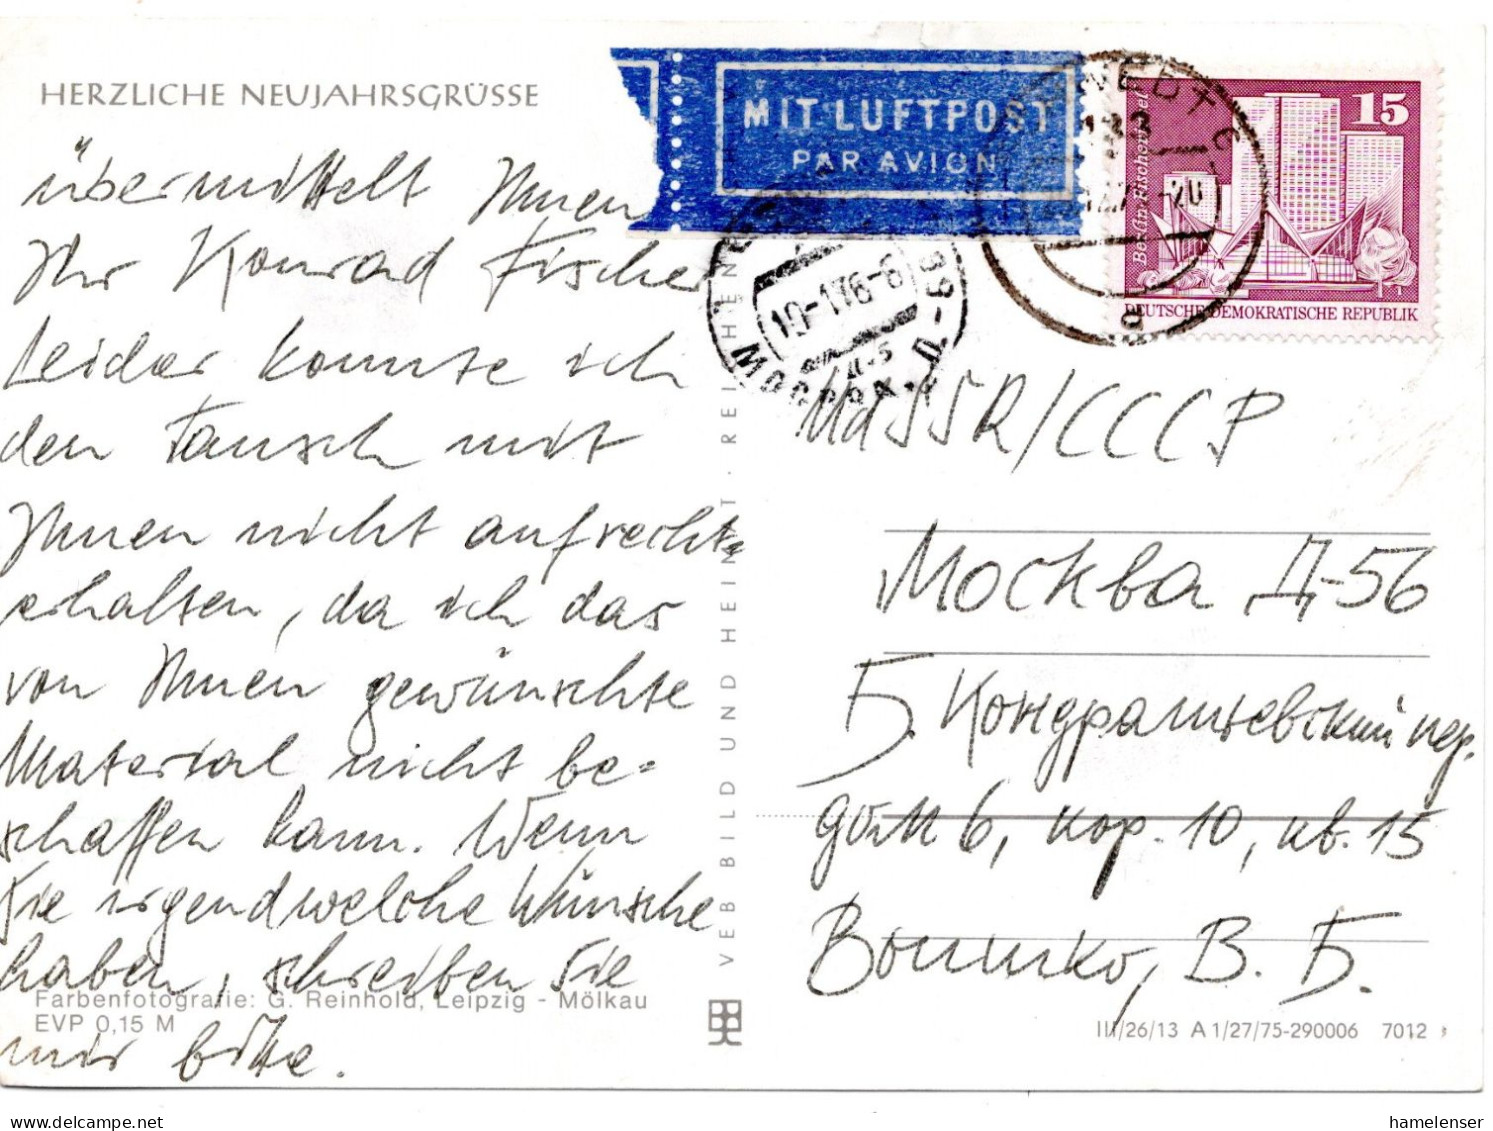 HERZLICHE NEUJAHRSGRÜSSE
übermittelt Ihnen
Ihr Konrad Fischer
Leider konnte ich
den Tausch mit
Ihnen nicht aufrecht=
erhalten, da ich das
von Ihnen gewünschte
Material nicht be-
schaffen kann. Wenn
Sie irgendwelche Wünsche
haben, schreiben Sie
mir bitte.
Farbenfotografie: G. Reinhold, Leipzig - Mölkau
EVP 0,15 M
VEB BILD UND HEIMAT REICHENBACH
MIT LUFTPOST
PAR AVION
10-1 76-6
МОСКВА
15
Berlin-Fischerinsel
DEUTSCHE DEMOKRATISCHE REPUBLIK
UdSSR/СССР
Москва Д-56
Б. Кондратьевский пер.
дом 6, кор. 10, кв. 15
В. Б.
III/26/13 A 1/27/75-290006 7012
hamelenser